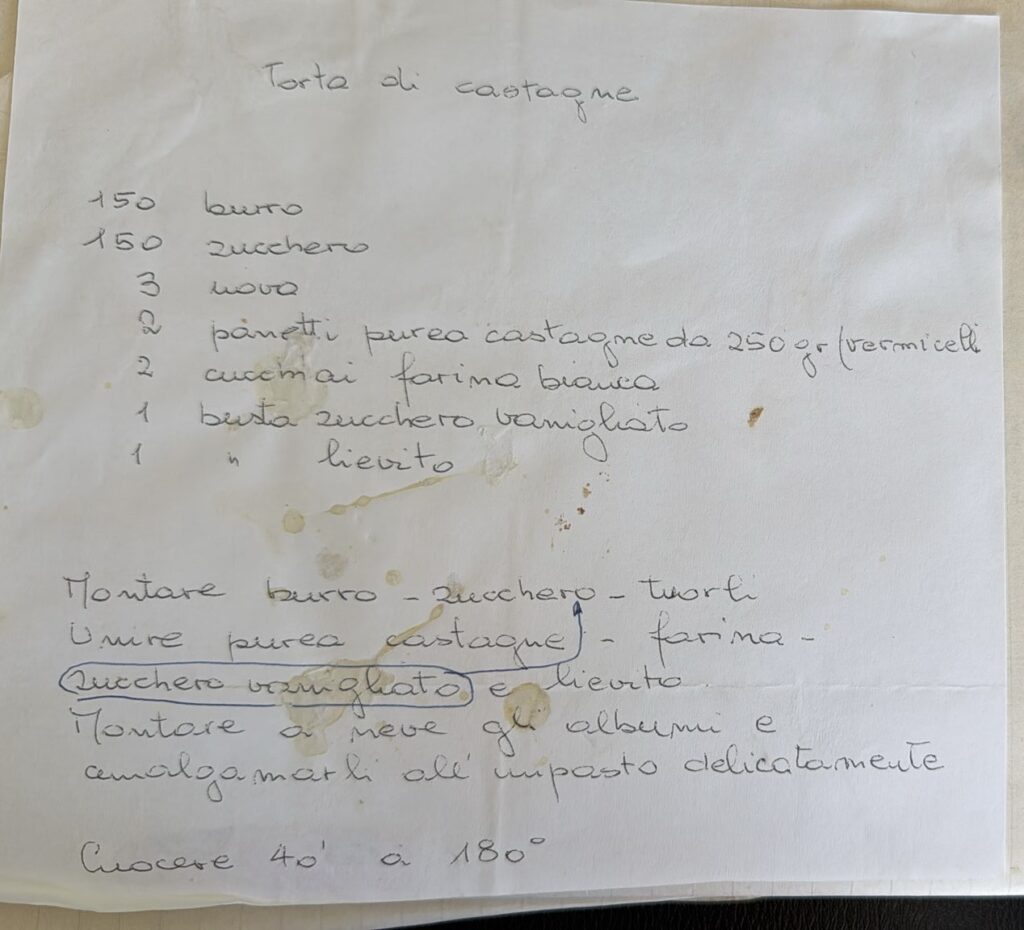 Torta di castagne
150 burro
150 zucchero
3 uova
2 panetti purea castagne da 250 gr/vermicelli
2 cucchiai farina bianca
1 busta zucchero vanigliato
1 " lievito
Montare burro - zucchero - tuorli
Unire purea castagne - farina -
zucchero vanigliato e lievito
Montare a neve gli albumi e
amalgamarli all'impasto delicatamente
Cuocere 40' a 180°